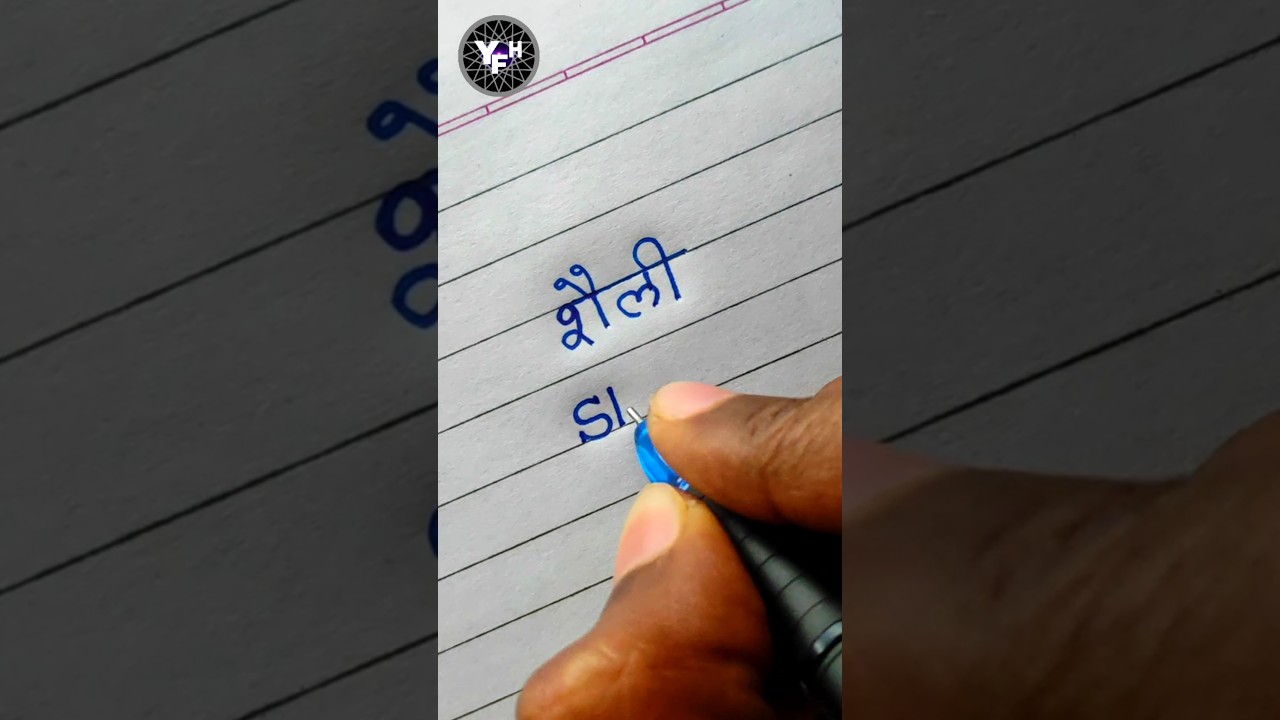 YFH
शैली
Sh